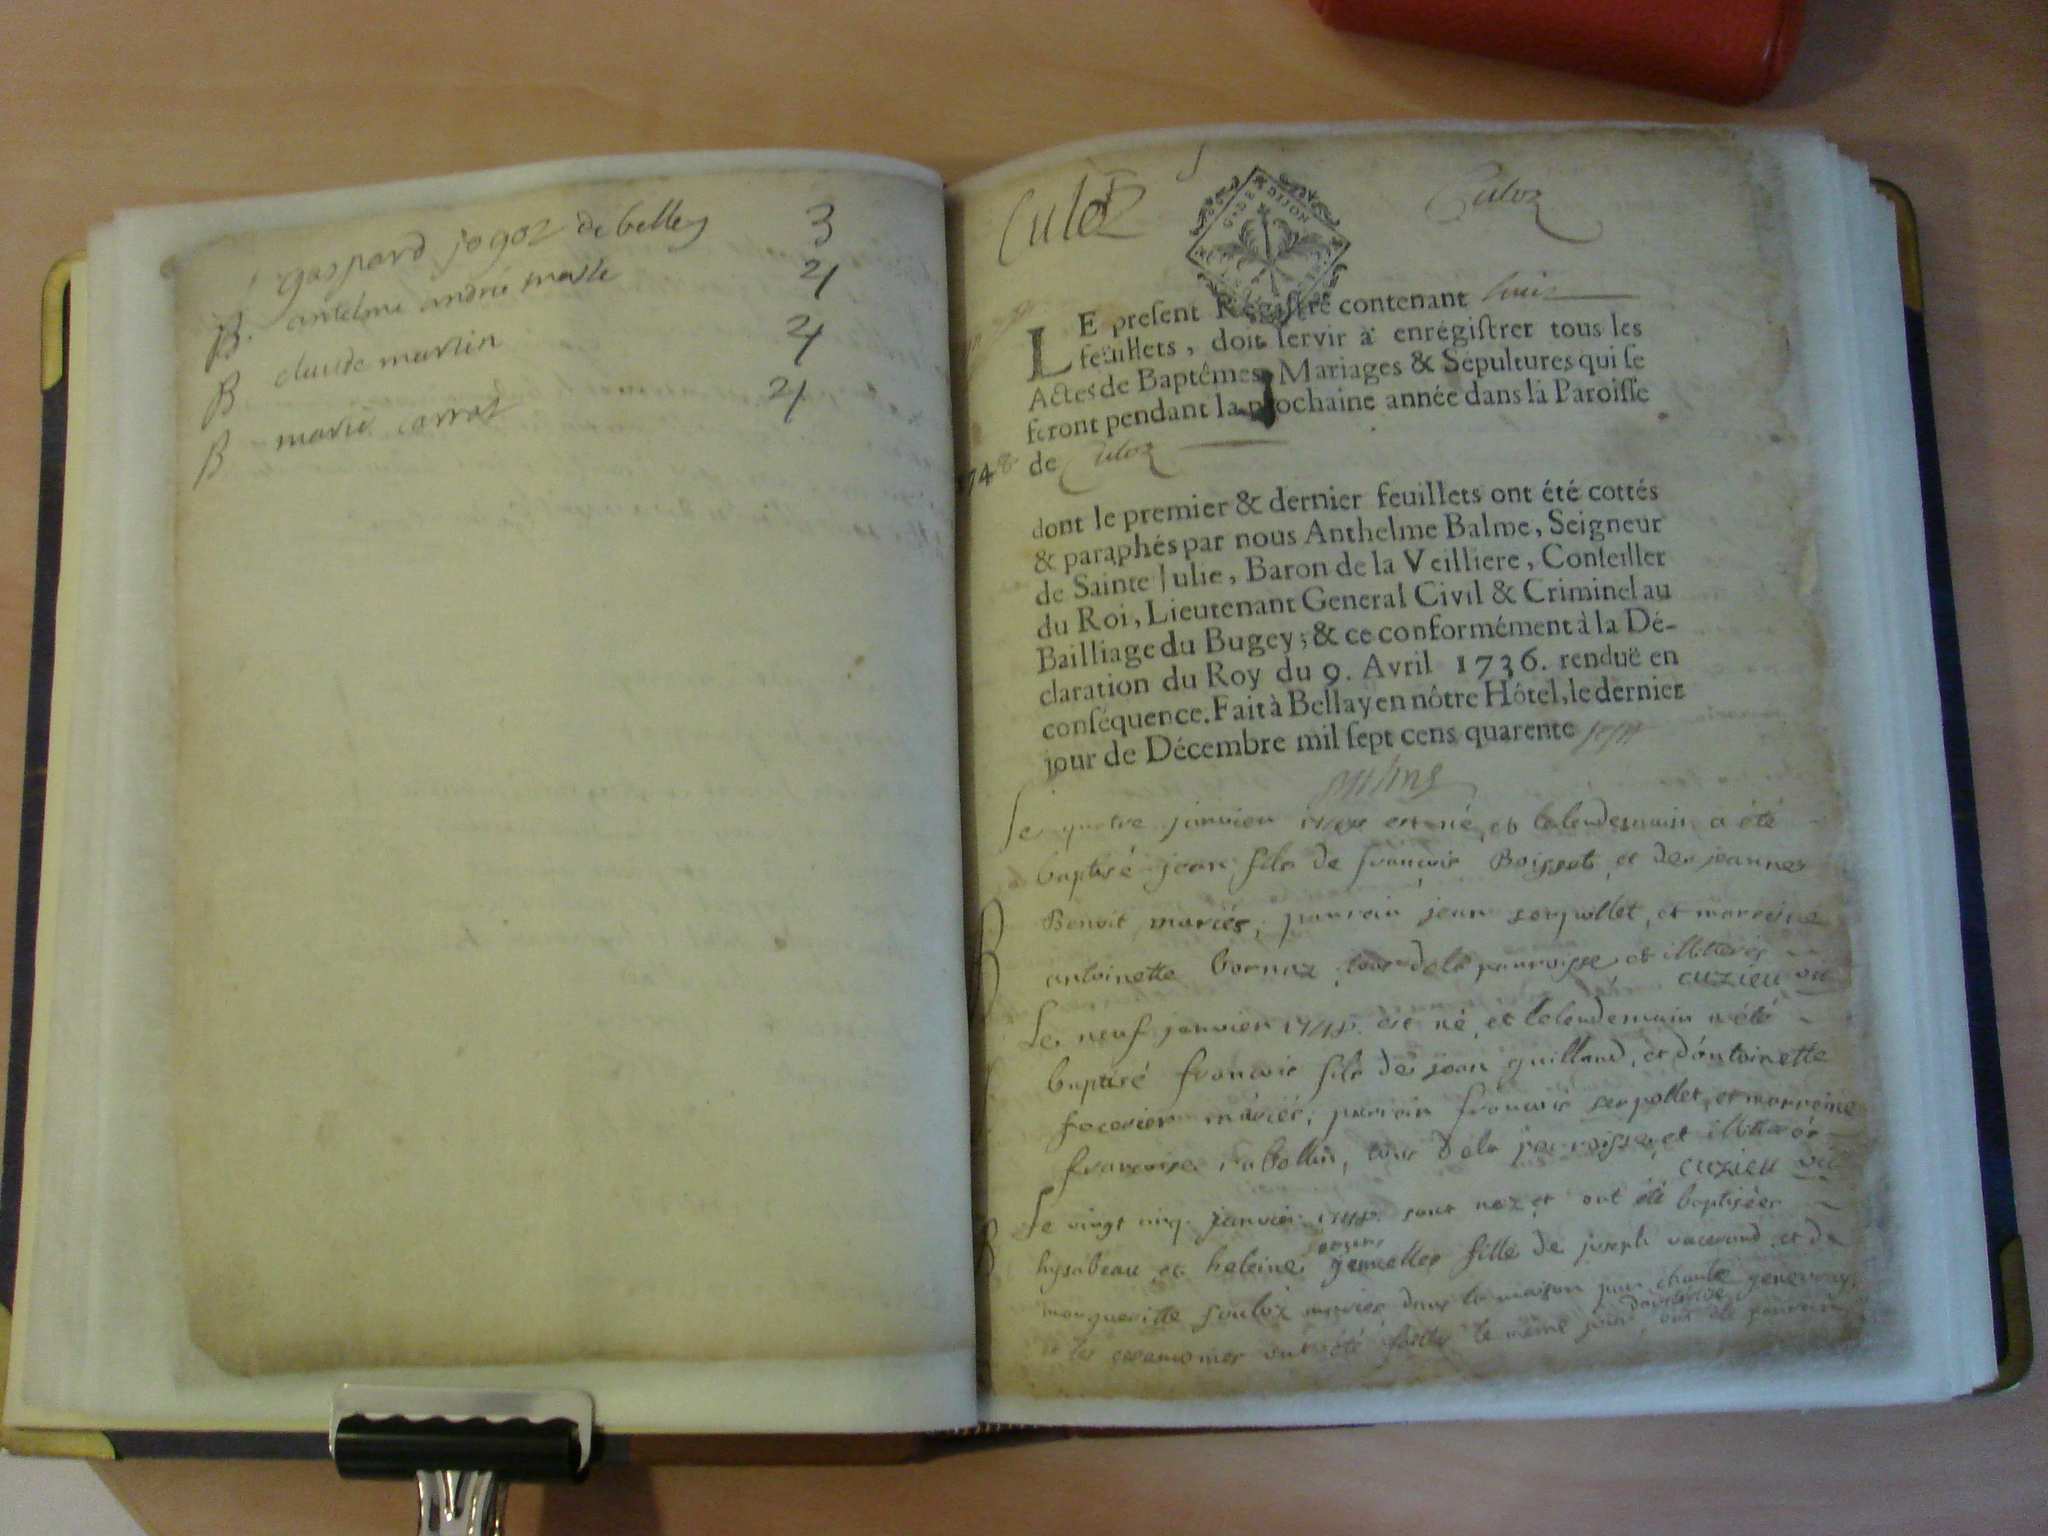 gaspard jogoz de belley 3
B. anselme andré masle 4
B claude martin 4
B marie carrat 4
Culoz
G. DE DIJON
Culoz
LE present Registre contenant huit
feüillets, doit servir à enrégistrer tous les
Actes de Baptêmes, Mariages & Sépultures qui se
feront pendant la prochaine année dans la Paroisse
de Culoz
1748
dont le premier & dernier feuillets ont été cottés
& paraphés par nous Anthelme Balme, Seigneur
de Sainte Julie, Baron de la Veilliere, Conseiller
du Roi, Lieutenant General Civil & Criminel au
Bailliage du Bugey; & ce conformément à la Dé-
claration du Roy du 9. Avril 1736. renduë en
conséquence. Fait à Bellay en nôtre Hôtel, le dernier
jour de Décembre mil sept cens quarente sept
Le quatre janvier 1748 est né et le lendemain a été
baptisé jean fils de françois Boisset et de jeanne
B Benoit mariés, parrain jean serpollet, et marreine
antoinette bornaz, tous de la parroisse et illitterés
cuzieu vic
Le neuf janvier 1748. est né et le lendemain a été
baptisé françois fils de jean guilland, et d'antoinette
B mariés, parrain françois serpollet, et marreine
françoise rabollin, tous de la parroisse, et illitterés
cuzieu vic
Le vingt cinq janvier 1748. sont nez et ont été baptisées
B hysabeau et heleine jumelles fille de joseph vacerand et de
margueritte mariés dans la maison par genevray,
et les ont été faittes le même jour, ont été parrain